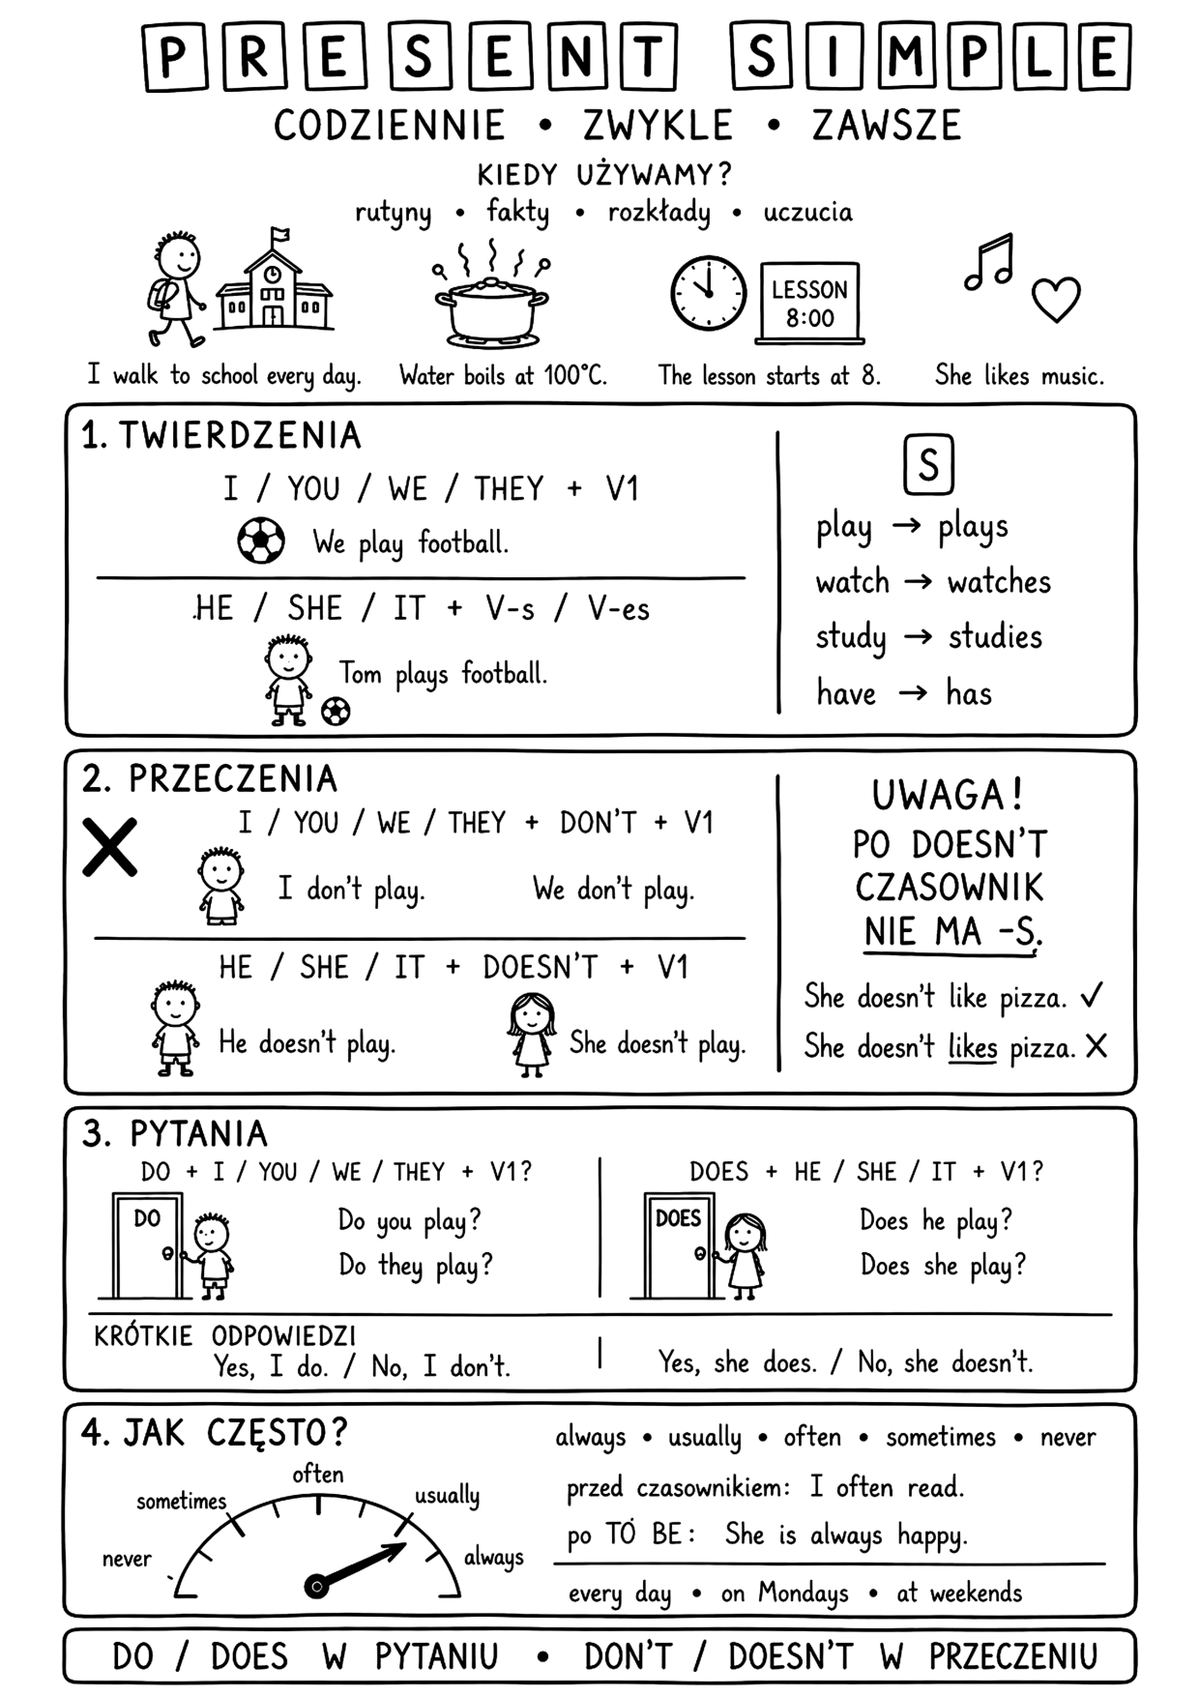 PRESENT SIMPLE
CODZIENNIE • ZWYKLE • ZAWSZE
KIEDY UŻYWAMY?
rutyny • fakty • rozkłady • uczucia
LESSON
8:00
I walk to school every day.
Water boils at 100°C.
The lesson starts at 8.
She likes music.
1. TWIERDZENIA
I / YOU / WE / THEY + V1
We play football.
HE / SHE / IT + V-s / V-es
Tom plays football.
S
play → plays
watch → watches
study → studies
have → has
2. PRZECZENIA
I / YOU / WE / THEY + DON'T + V1
I don't play.
We don't play.
HE / SHE / IT + DOESN'T + V1
He doesn't play.
She doesn't play.
UWAGA!
PO DOESN'T
CZASOWNIK
NIE MA -S.
She doesn't like pizza. ✓
She doesn't likes pizza. X
3. PYTANIA
DO + I / YOU / WE / THEY + V1?
DO
Do you play?
Do they play?
DOES + HE / SHE / IT + V1?
DOES
Does he play?
Does she play?
KRÓTKIE ODPOWIEDZI
Yes, I do. / No, I don't.
Yes, she does. / No, she doesn't.
4. JAK CZĘSTO?
never
sometimes
often
usually
always
always • usually • often • sometimes • never
przed czasownikiem: I often read.
po TÓ BE: She is always happy.
every day • on Mondays • at weekends
DO / DOES W PYTANIU • DON'T / DOESN'T W PRZECZENIU